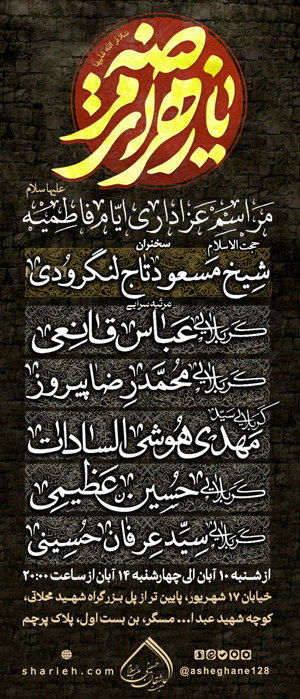 یا زهرای مرضیه
سلام الله علیها
علیها سلام
مراسم عزاداری ایام فاطمیه
سخنران
حجت الاسلام
شیخ مسعود تاج لنگرودی
مرثیه سرایی
کربلایی عباس قانعی
کربلایی محمدرضا پیروز
کربلایی سید مهدی هوشی السادات
کربلایی حسین عظیمی
کربلایی سید عرفان حسینی
از شنبه ۱۰ آبان الی چهارشنبه ۱۴ آبان از ساعت ۲۰:۰۰
خیابان ۱۷ شهریور، پایین تر از پل بزرگراه شهید محلاتی،
کوچه شهید عبدا... مسگر، بن بست اول، پلاک پرچم
sharieh.com
@asheghane128